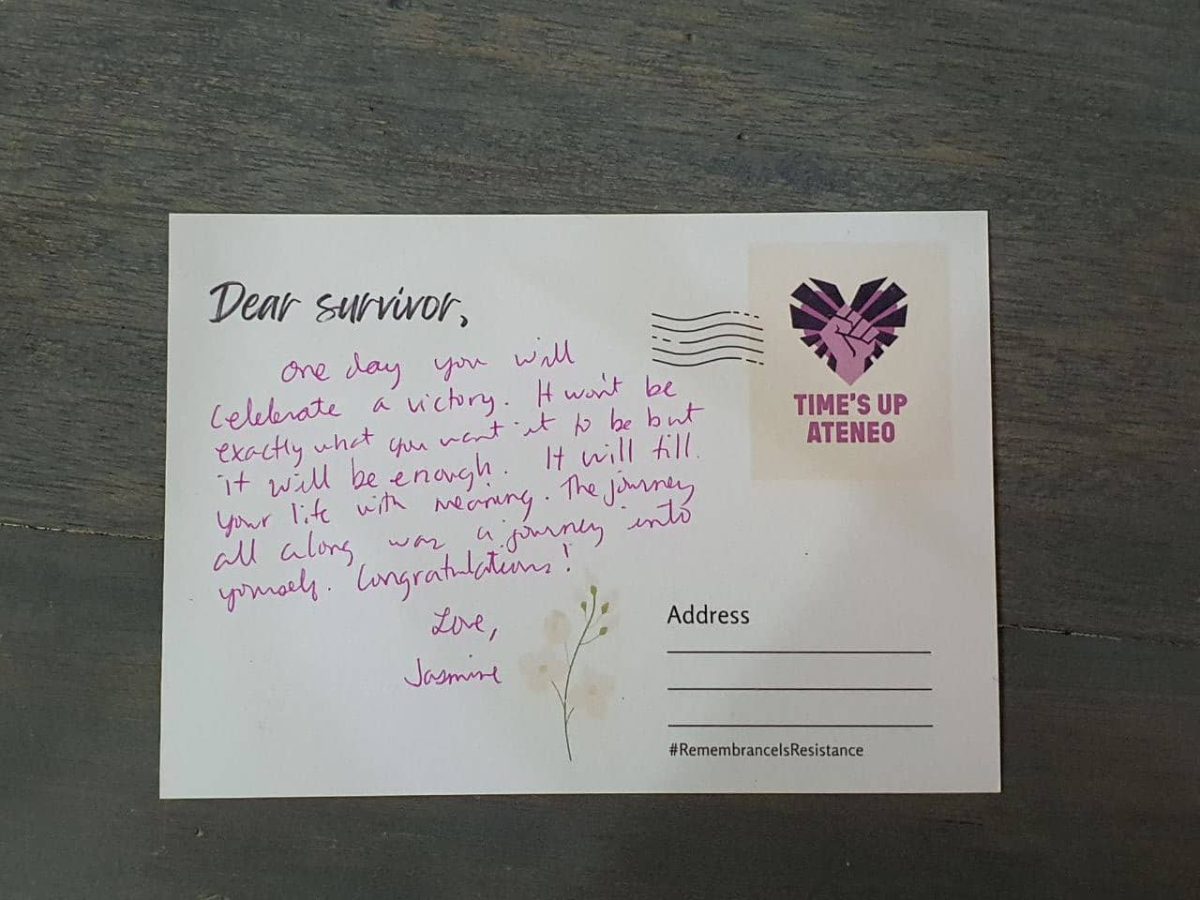 Dear survivor,
One day you will
celebrate a victory. It won't be
exactly what you want it to be but
it will be enough. It will fill
your life with meaning. The journey
all along was a journey into
yourself. Congratulations!
Love,
Jasmine
TIME'S UP
ATENEO
Address
#RemembranceIsResistance